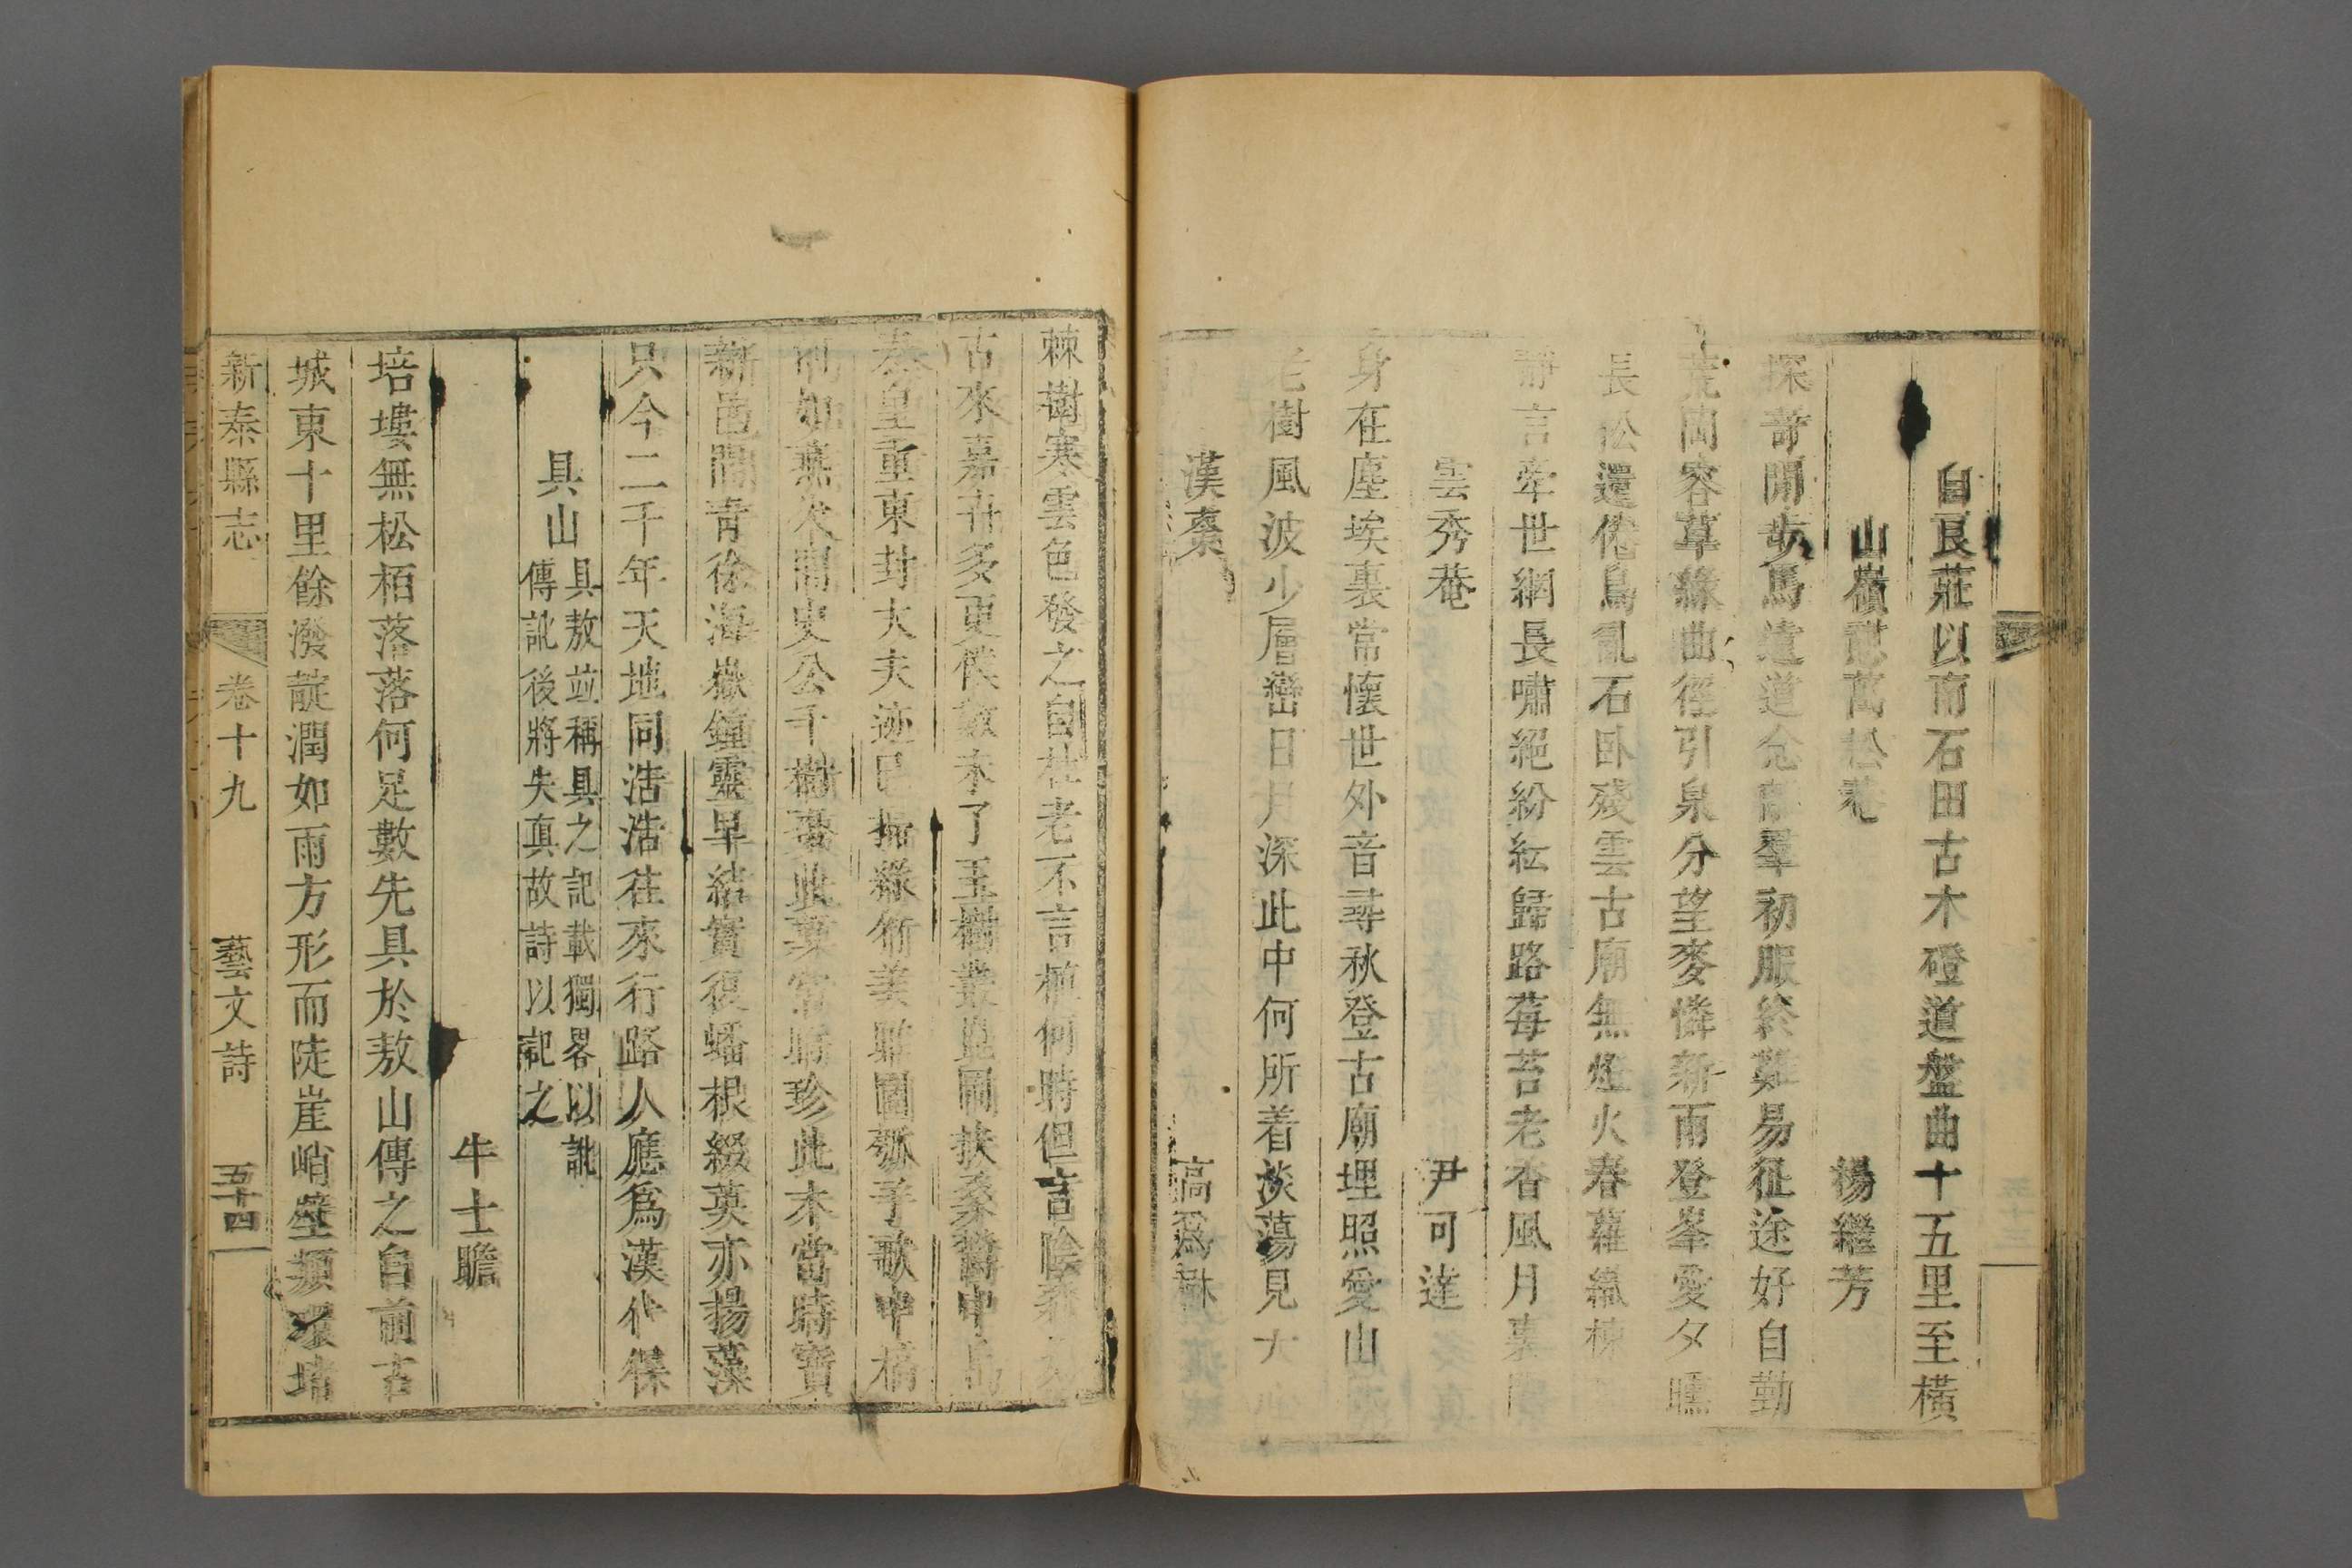 自艮莊以南石田古木磴道盤曲十五里至橫
山嶺憩萬松菴
楊繼芳
探奇閒步馬遠道念離羣初服終難易征途好自勤
荒岡容草綠曲徑引泉分望麥憐新雨登峯愛夕曛
長松還倦鳥亂石卧殘雲古廟無煙火春蘿織棟
靜言牽世網長嘯絕紛紜歸路莓苔老杏風月裏聞
雲秀菴
尹可達
身在塵埃裏常懷世外音尋秋登古廟埋照愛山
老樹風波少層巒日月深此中何所着淡蕩見
漢棗
高爲
棘樹寒雲色發之自杜老不言植何時但言陰森
古來嘉卉多更僕數未了玉樹叢
秦皇重東封大夫迹已掃綠竹美 園瓠子歌中槁
何如 史公千樹棗此棗常 珍此木當時寶
新邑間青徐海嶽鍾靈早結實復蟠根綴英亦揚藻
只今二千年天地同浩浩往來行路人應爲漢代保
具山
具敖竝稱具之記載獨畧以訛
傳訛後將失真故詩以記之
牛士瞻
培塿無松栢落落何足數先具於敖山傳之自前古
城東十里餘潑靛潤如雨方形而陡崖峭壁類環堵
新泰縣志
卷十九
藝文詩
五十四